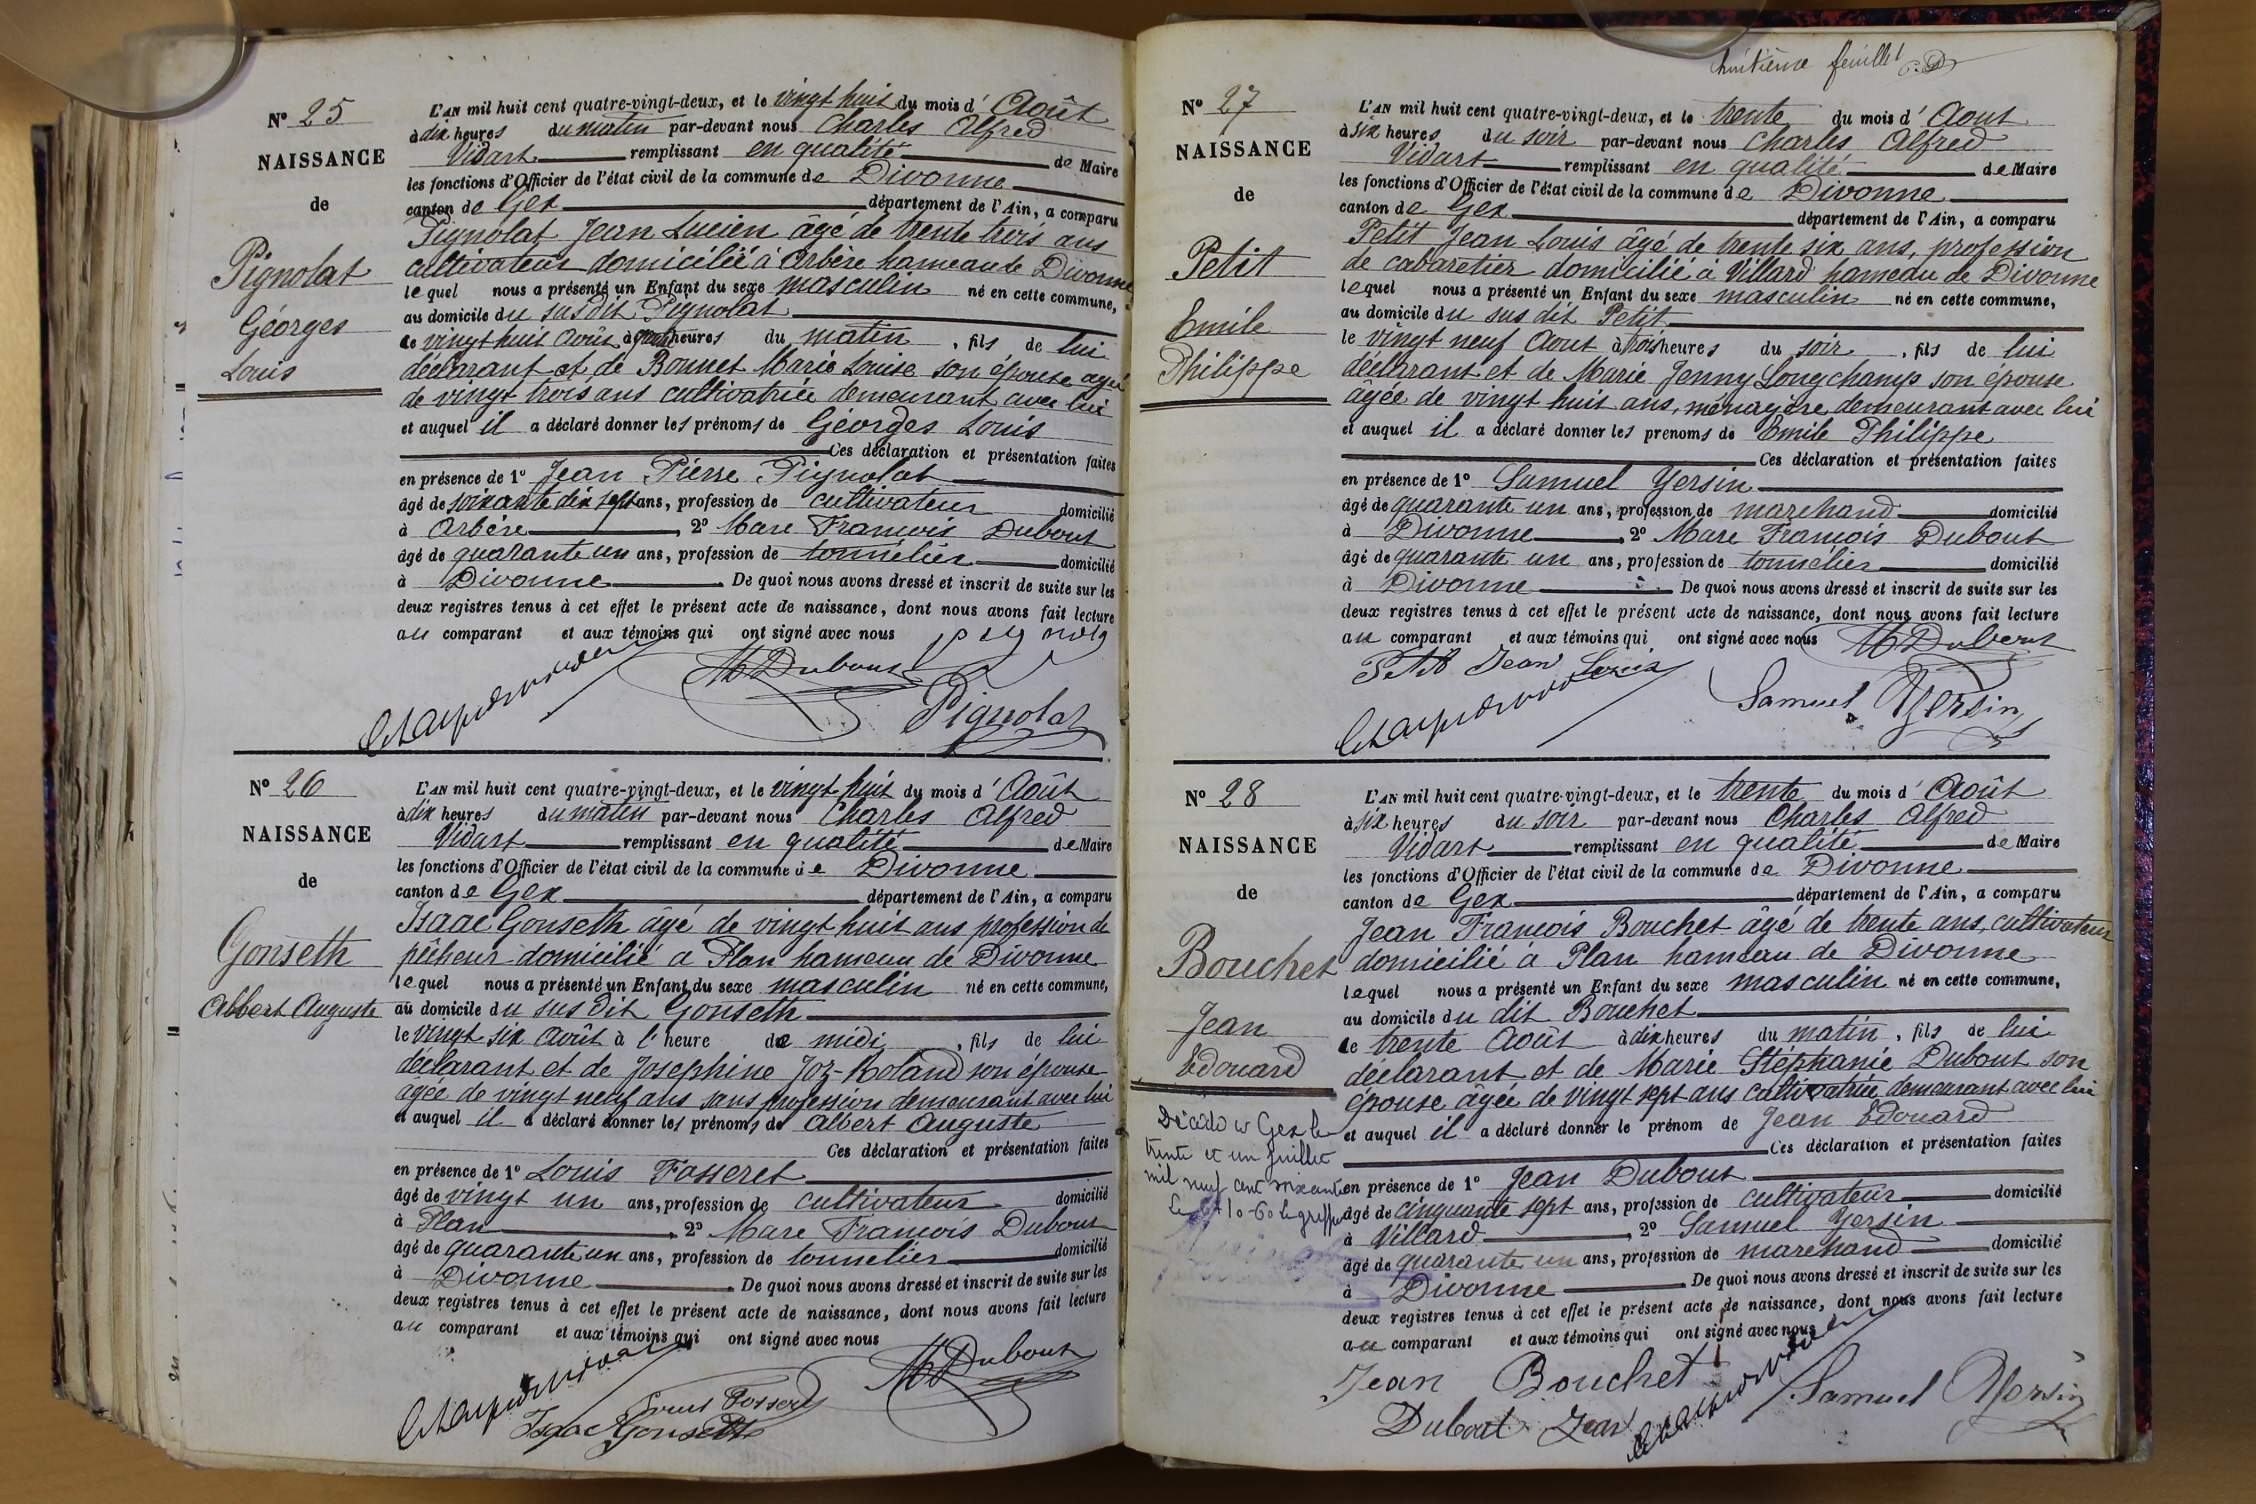 Nº 25
NAISSANCE
de
Pignolat
Géorges
Louis
L'AN mil huit cent quatre-vingt-deux, et le vingt huit du mois d' Août
à dix heures du matin par-devant nous Charles Alfred
Vidart remplissant en qualité de Maire
les fonctions d'Officier de l'état civil de la commune de Divonne
canton de Gex département de l'Ain, a comparu
Pignolat Jean Lucien âgé de trente trois ans
cultivateur domicilié à Arbère hameau de Divonne
lequel nous a présenté un Enfant du sexe masculin né en cette commune,
au domicile du susdit Pignolat
le vingt huit Août à heures du matin, fils de lui
déclarant et de Bonnet Marie Louise son épouse agée
de vingt trois ans cultivatrice demeurant avec lui
et auquel il a déclaré donner les prénoms de Géorges Louis
Ces déclaration et présentation faites
en présence de 1º Jean Pierre Pignolat
âgé de soixante dix sept ans, profession de cultivateur domicilié
à Arbère 2º Marc François Dubout
âgé de quarante un ans, profession de tonnelier domicilié
à Divonne De quoi nous avons dressé et inscrit de suite sur les
deux registres tenus à cet effet le présent acte de naissance, dont nous avons fait lecture
au comparant et aux témoins qui ont signé avec nous
M Dubout
Pignolat
Nº 26
NAISSANCE
de
Gonseth
Albert Auguste
L'AN mil huit cent quatre-vingt-deux, et le vingt huit du mois d' Août
à dix heures du matin par-devant nous Charles Alfred
Vidart remplissant en qualité de Maire
les fonctions d'Officier de l'état civil de la commune de Divonne
canton de Gex département de l'Ain, a comparu
Isaac Gonseth âgé de vingt huit ans profession de
pêcheur domicilié à Plan hameau de Divonne
lequel nous a présenté un Enfant du sexe masculin né en cette commune,
au domicile du sus dit Gonseth
le vingt six Août à l'heure de midi, fils de lui
déclarant et de Josephine Joz-Roland son épouse
agée de vingt neuf ans sans profession demeurant avec lui
et auquel il a déclaré donner les prénoms de Albert Auguste
Ces déclaration et présentation faites
en présence de 1º Louis Fosseret
âgé de vingt un ans, profession de cultivateur domicilié
à Plan 2º Marc François Dubout
âgé de quarante un ans, profession de tonnelier domicilié
à Divonne De quoi nous avons dressé et inscrit de suite sur les
deux registres tenus à cet effet le présent acte de naissance, dont nous avons fait lecture
au comparant et aux témoins qui ont signé avec nous
M Dubout
Louis Fosseret
Isaac Gonseth
huitième feuillet
Nº 27
NAISSANCE
de
Petit
Emile
Philippe
L'AN mil huit cent quatre-vingt-deux, et le trente du mois d' Aout
à six heures du soir par-devant nous Charles Alfred
Vidart remplissant en qualité de Maire
les fonctions d'Officier de l'état civil de la commune de Divonne
canton de Gex département de l'Ain, a comparu
Petit Jean Louis âgé de trente six ans, profession
de cabaretier domicilié à Villard hameau de Divonne
lequel nous a présenté un Enfant du sexe masculin né en cette commune,
au domicile du sus dit Petit
le vingt neuf Aout à trois heures du soir, fils de lui
déclarant et de Marie Jenny Longchamp son épouse
âgée de vingt huit ans, ménagère demeurant avec lui
et auquel il a déclaré donner les prenoms de Emile Philippe
Ces déclaration et présentation faites
en présence de 1º Samuel Yersin
âgé de quarante un ans, profession de marchand domicilié
à Divonne 2º Marc François Dubout
âgé de quarante un ans, profession de tonnelier domicilié
à Divonne De quoi nous avons dressé et inscrit de suite sur les
deux registres tenus à cet effet le présent acte de naissance, dont nous avons fait lecture
au comparant et aux témoins qui ont signé avec nous
M Dubout
Petit Jean Louis
Samuel Yersin
Nº 28
NAISSANCE
de
Bouchet
Jean
Edouard
Décédé à Gex le
trente et un Juillet
mil neuf cent soixante
L'AN mil huit cent quatre-vingt-deux, et le trente du mois d' Août
à six heures du soir par-devant nous Charles Alfred
Vidart remplissant en qualité de Maire
les fonctions d'Officier de l'état civil de la commune de Divonne
canton de Gex département de l'Ain, a comparu
Jean François Bouchet âgé de trente ans, cultivateur
domicilié à Plan hameau de Divonne
lequel nous a présenté un Enfant du sexe masculin né en cette commune,
au domicile du dit Bouchet
le trente Août à dix heures du matin, fils de lui
déclarant et de Marie Stéphanie Dubout son
épouse âgée de vingt sept ans cultivatrice demeurant avec lui
et auquel il a déclaré donner le prénom de Jean Edouard
Ces déclaration et présentation faites
en présence de 1º Jean Dubout
âgé de cinquante sept ans, profession de cultivateur domicilié
à Villard 2º Samuel Yersin
âgé de quarante un ans, profession de marchand domicilié
à Divonne De quoi nous avons dressé et inscrit de suite sur les
deux registres tenus à cet effet le présent acte de naissance, dont nous avons fait lecture
au comparant et aux témoins qui ont signé avec nous
Jean Bouchet
Samuel Yersin
Dubout Jean